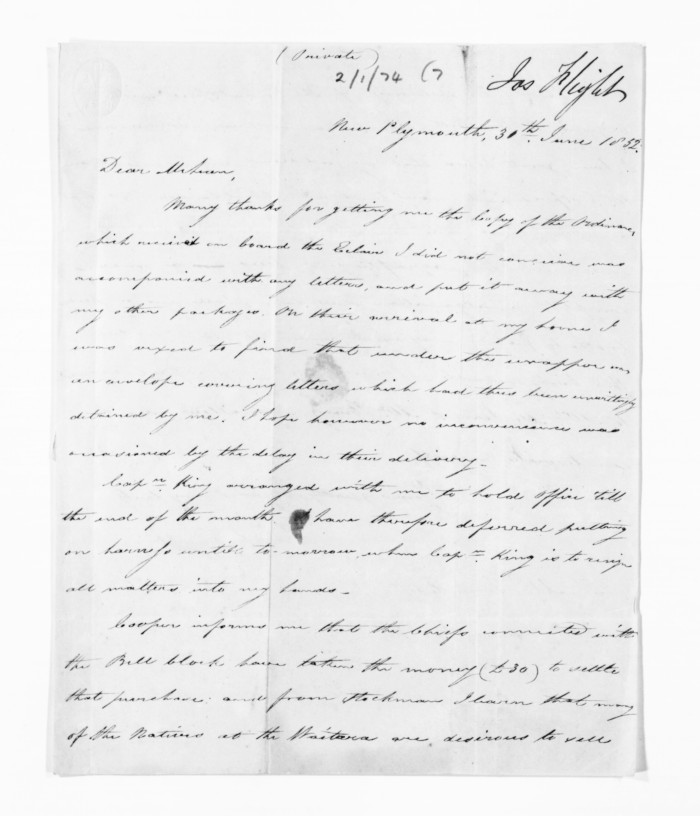 (Private)
2/1/74 (7
Jos Flight
New Plymouth, 30th June 1852.
Dear McLean,
Many thanks for getting me the Copy of the Ordinance,
which received on board the Eclair I did not conceive was
accompanied with any letters, and put it away with
my other packages. On their arrival at my home I
was vexed to find that under the wrapper was
an envelope covering letters which had thus been unwittingly
detained by me. I hope however no inconvenience was
occasioned by the delay in their delivery.
Capn King arranged with me to hold office till
the end of the month. I have therefore deferred putting
on harness until to-morrow, when Capn King is to resign
all matters into my hands.
Cooper informs me that the Chiefs connected with
the Bell block have taken the money (£30) to settle
that purchase: and from Hockman I learn that many
of the Natives at the Waitara are desirous to sell